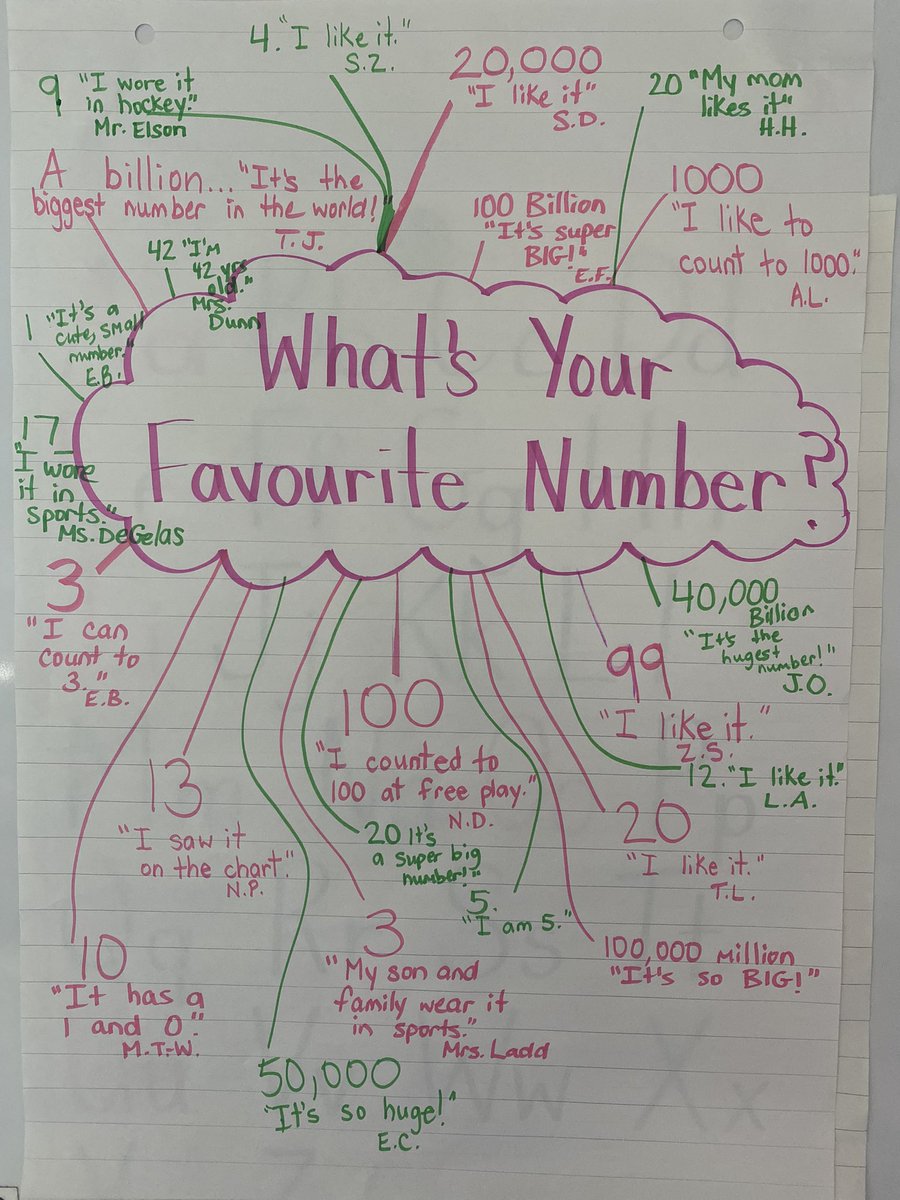 4. "I like it."
S.Z.
20,000
"I like it"
S.D.
9 "I wore it
in hockey."
Mr. Elson
20 "My mom
likes it"
H.H.
A billion... "It's the
biggest number in the world!"
T.J.
100 Billion
"It's super
BIG!"
E.F.
1000
"I like to
count to 1000."
A.L.
42 "I'm
42 yrs
old."
Mrs.
Dunn
1 "It's a
cute, small
number."
E.B.
What's Your
Favourite Number?
17
"I wore
it in
sports."
Ms. DeGelas
3
"I can
count to
3."
E.B.
40,000
Billion
"It's the
hugest
number!"
J.O.
99
"I like it."
Z.S.
12. "I like it"
L.A.
100
"I counted to
100 at free play."
N.D.
13
"I saw it
on the chart."
N.P.
20 It's
a super big
number!"
20
"I like it."
T.L.
5.
"I am 5."
3
"My son and
family wear it
in sports."
Mrs. Ladd
100,000 Million
"It's so BIG!"
10
"It has a
1 and 0."
M.T-W.
50,000
"It's so huge!"
E.C.